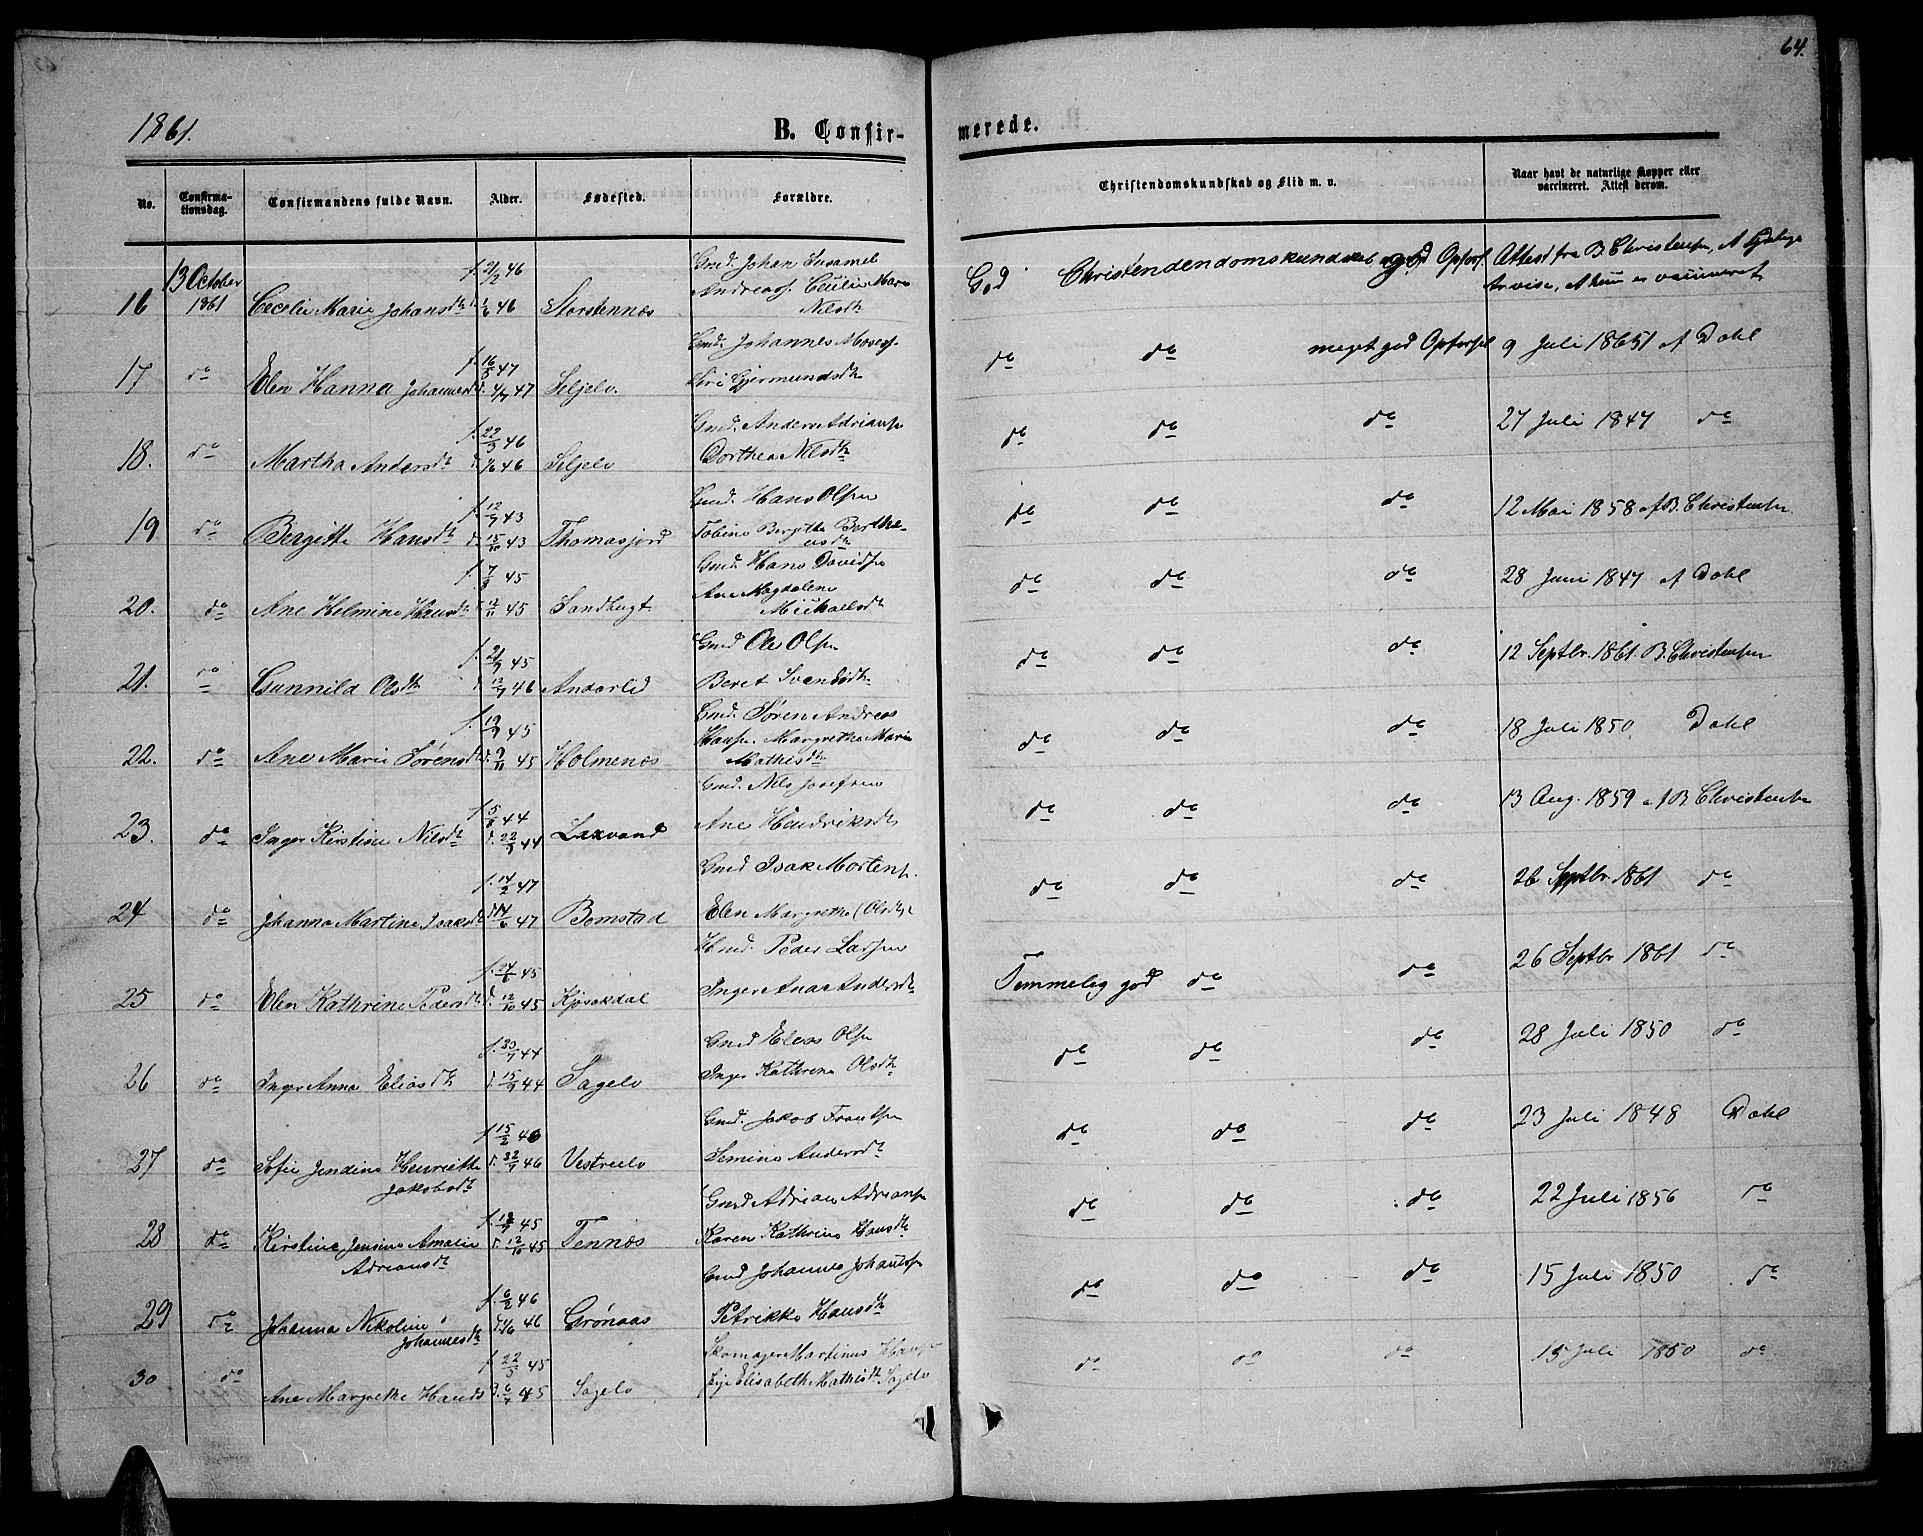 64.
1861.
B. Confir-
merede.
No.
Confirma-
tionsdag.
Confirmandens fulde Navn.
Alder.
Fødested.
Forældre.
Christendomskundskab og Flid m. v.
Naar havt de naturlige Kopper eller
vaccineret. Attest derom.
16 13 October 1861 Cecelie Marie Johansdt f. 21/2 46 46 Storstennæs
Gmd. Johan
Cecilie Marie
Nilsdt
God Christendendomskundskab god Opførsel Attest fra B. Christensen
17 do Elen Hanna Johannesd f. 16/5 47 47 Seljelv.
Gmd. Johannes
Siri Gjermundsdt
do do meget god Opførsel 9 Juli af Dahl
18. do Martha Andersdt f. 22/3 46 46 Seljelv
Gmd. Anders Adriansen
Dorthea Nilsdt
do do do 27 Juli 1847 do
19 do Bergitte Hansdt f. 12/9 43 d. 15/10 43 Thomasjord
Gmd. Hans Olsen
Tobine Bergitte Berthe-
usdt
do do do 12 Mai 1858 af B. Christensen
20. do Ane Helmine Hansdt f. 7/9 45 12/11 45 Sandbugt
Gmd. Hans Davidsen
Ane Magdalene
Mickaelsdt
do do do 28 Juni 1847 af Dahl
21. do Gunnild Olsdt f. 21/9 45 46 Anderlid
Gmd Ole Olsen
Beret Svendsdt
do do do 12 Septbr. 1861. B. Christensen
22. do Ane Marie Sørensdt f. 19/9 45 d. 9/11 45 Holmenæs
Gmd. Søren Andreas
Hansen. Margrethe Marie
Mathisdt
do do do 18 Juli 1850. Dahl
23. do Inger Kirstine Nilsdt f. 5/8 44 d. 22/9 44 Laxvand
Gmd. Nils Josefsen
Ane Hendriksdt
do do do 13 Aug. 1859 af B Christensen
24 do Johanna Martine Isaksdt f. 14/2 47 47 Bomstad
Gmd Isak Mortens.
Elen Margrethe Olsdt
do do do 26 Septbr 1861 do
25 do Elen Kathrine Pedersdt 45 d. 12/10 45 Kjosakdal
Hmd. Peder Larsen
Inger Ana Andersdt
Temmelig god do do 26 Septbr 1861 do
26 do Inger Anna Eliasdt f. 30/7 44 d. 15/9 44 Sagelv
Gmd Elias Olsen
Inger Kathrine Olsdt
do do do 28 Juli 1850 do
27 do Sofie Jendine Henriette
Jakobsdt f. 15/2 46 46 Vestreelv
Gmd. Jakob Frantsen
Semine Andersdt
do do do 23 Juli 1848 Dahl
28 do Kirstine Jensine Amalie
Adriansdt 45 d. 12/10 45 Tennæs
Gmd Adrian Adriansen
Karen Kathrine Hansdt
do do do 22 Juli 1856 do
29 do Johanna Nikoline
Johannesdt f. 6/2 46 46 Grønaas
Gmd Johannes Johannessen
Petrikke Hansdt
do do do 15 Juli 1850. do
30 do Ane Margrethe Hansd f. 22/5 45 d. 6/7 45 Sagelv
Skomager Martinus
Elisabeth Mathisdt Sagelv
do do do 15 Juli 1850 do